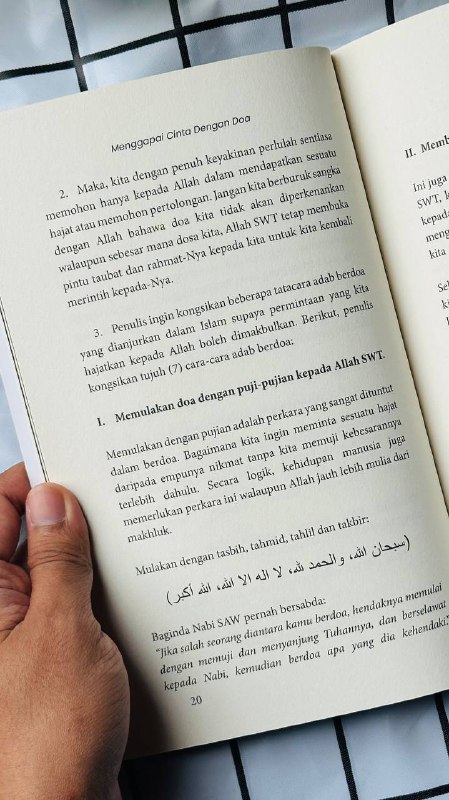 Menggapai Cinta Dengan Doa
2. Maka, kita dengan penuh keyakinan perlulah sentiasa
memohon hanya kepada Allah dalam mendapatkan sesuatu
hajat atau memohon pertolongan. Jangan kita berburuk sangka
dengan Allah bahawa doa kita tidak akan diperkenankan
walaupun sebesar mana dosa kita, Allah SWT tetap membuka
pintu taubat dan rahmat-Nya kepada kita untuk kita kembali
merintih kepada-Nya.
3. Penulis ingin kongsikan beberapa tatacara adab berdoa
yang dianjurkan dalam Islam supaya permintaan yang kita
hajatkan kepada Allah boleh dimakbulkan. Berikut, penulis
kongsikan tujuh (7) cara-cara adab berdoa:
I. Memulakan doa dengan puji-pujian kepada Allah SWT.
Memulakan dengan pujian adalah perkara yang sangat dituntut
dalam berdoa. Bagaimana kita ingin meminta sesuatu hajat
daripada empunya nikmat tanpa kita memuji kebesarannya
terlebih dahulu. Secara logik, kehidupan manusia juga
memerlukan perkara ini walaupun Allah jauh lebih mulia dari
makhluk.
Mulakan dengan tasbih, tahmid, tahlil dan takbir:
(سبحان الله، و الحمد لله، لا اله الا الله، الله أكبر)
Baginda Nabi SAW pernah bersabda:
"Jika salah seorang diantara kamu berdoa, hendaknya memulai
dengan memuji dan menyanjung Tuhannya, dan berselawat
kepada Nabi, kemudian berdoa apa yang dia kehendaki."
20
II.
Ini juga
SWT, k
kepada
meng
kita